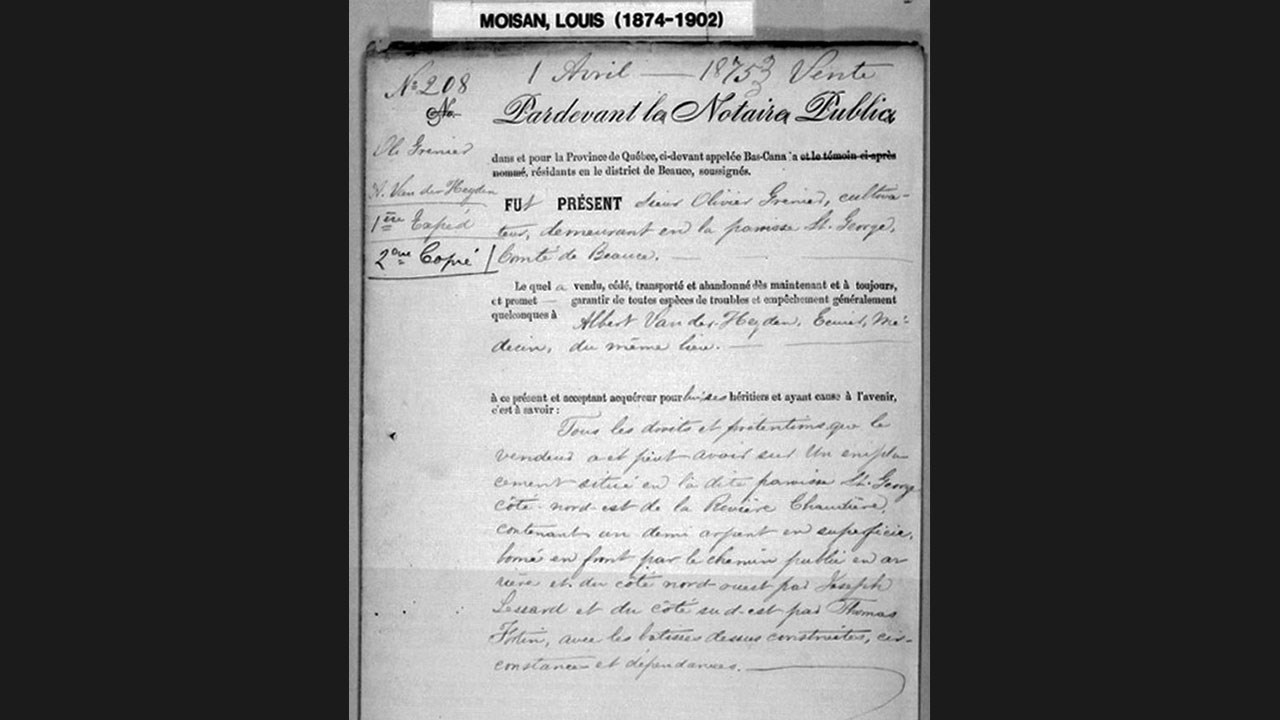 MOISAN, LOUIS (1874-1902)
1 Avril — 1875 Vente
No 208
No.
Pardevant la Notaire Public
Ol. Grenier
dans et pour la Province de Québec, ci-devant appelée Bas-Cana a et le témoin ci-après
nommé, résidants en le district de Beauce, soussignés.
A. Van der Heyden
FUt PRÉSENT Sieur Olivier Grenier, cultiva-
1ère Expéd
teur, demeurant en la paroisse St. George,
2ème Copié
Comté de Beauce.
Le quel a vendu, cédé, transporté et abandonné dès maintenant et à toujours,
et promet — garantir de toutes espèces de troubles et empêchement généralement
quelconques à Albert Van der Heyden, Ecuier, Mé-
decin, du même lieu.
à ce présent et acceptant acquéreur pour lui ses héritiers et ayant cause à l'avenir,
c'est à savoir :
Tous les droits et prétentions que le
vendeur a et peut avoir sur Un empla-
cement situé en la dite paroisse St. George
côté nord-est de la Rivière Chaudière,
contenant un demi arpent en superficie,
borné en front par le chemin public en ar
rière et du côté nord ouest par Joseph
Lessard et du côté sud-est par Thomas
Fortin, avec les batisses dessus construites, cir-
constances et dépendances.